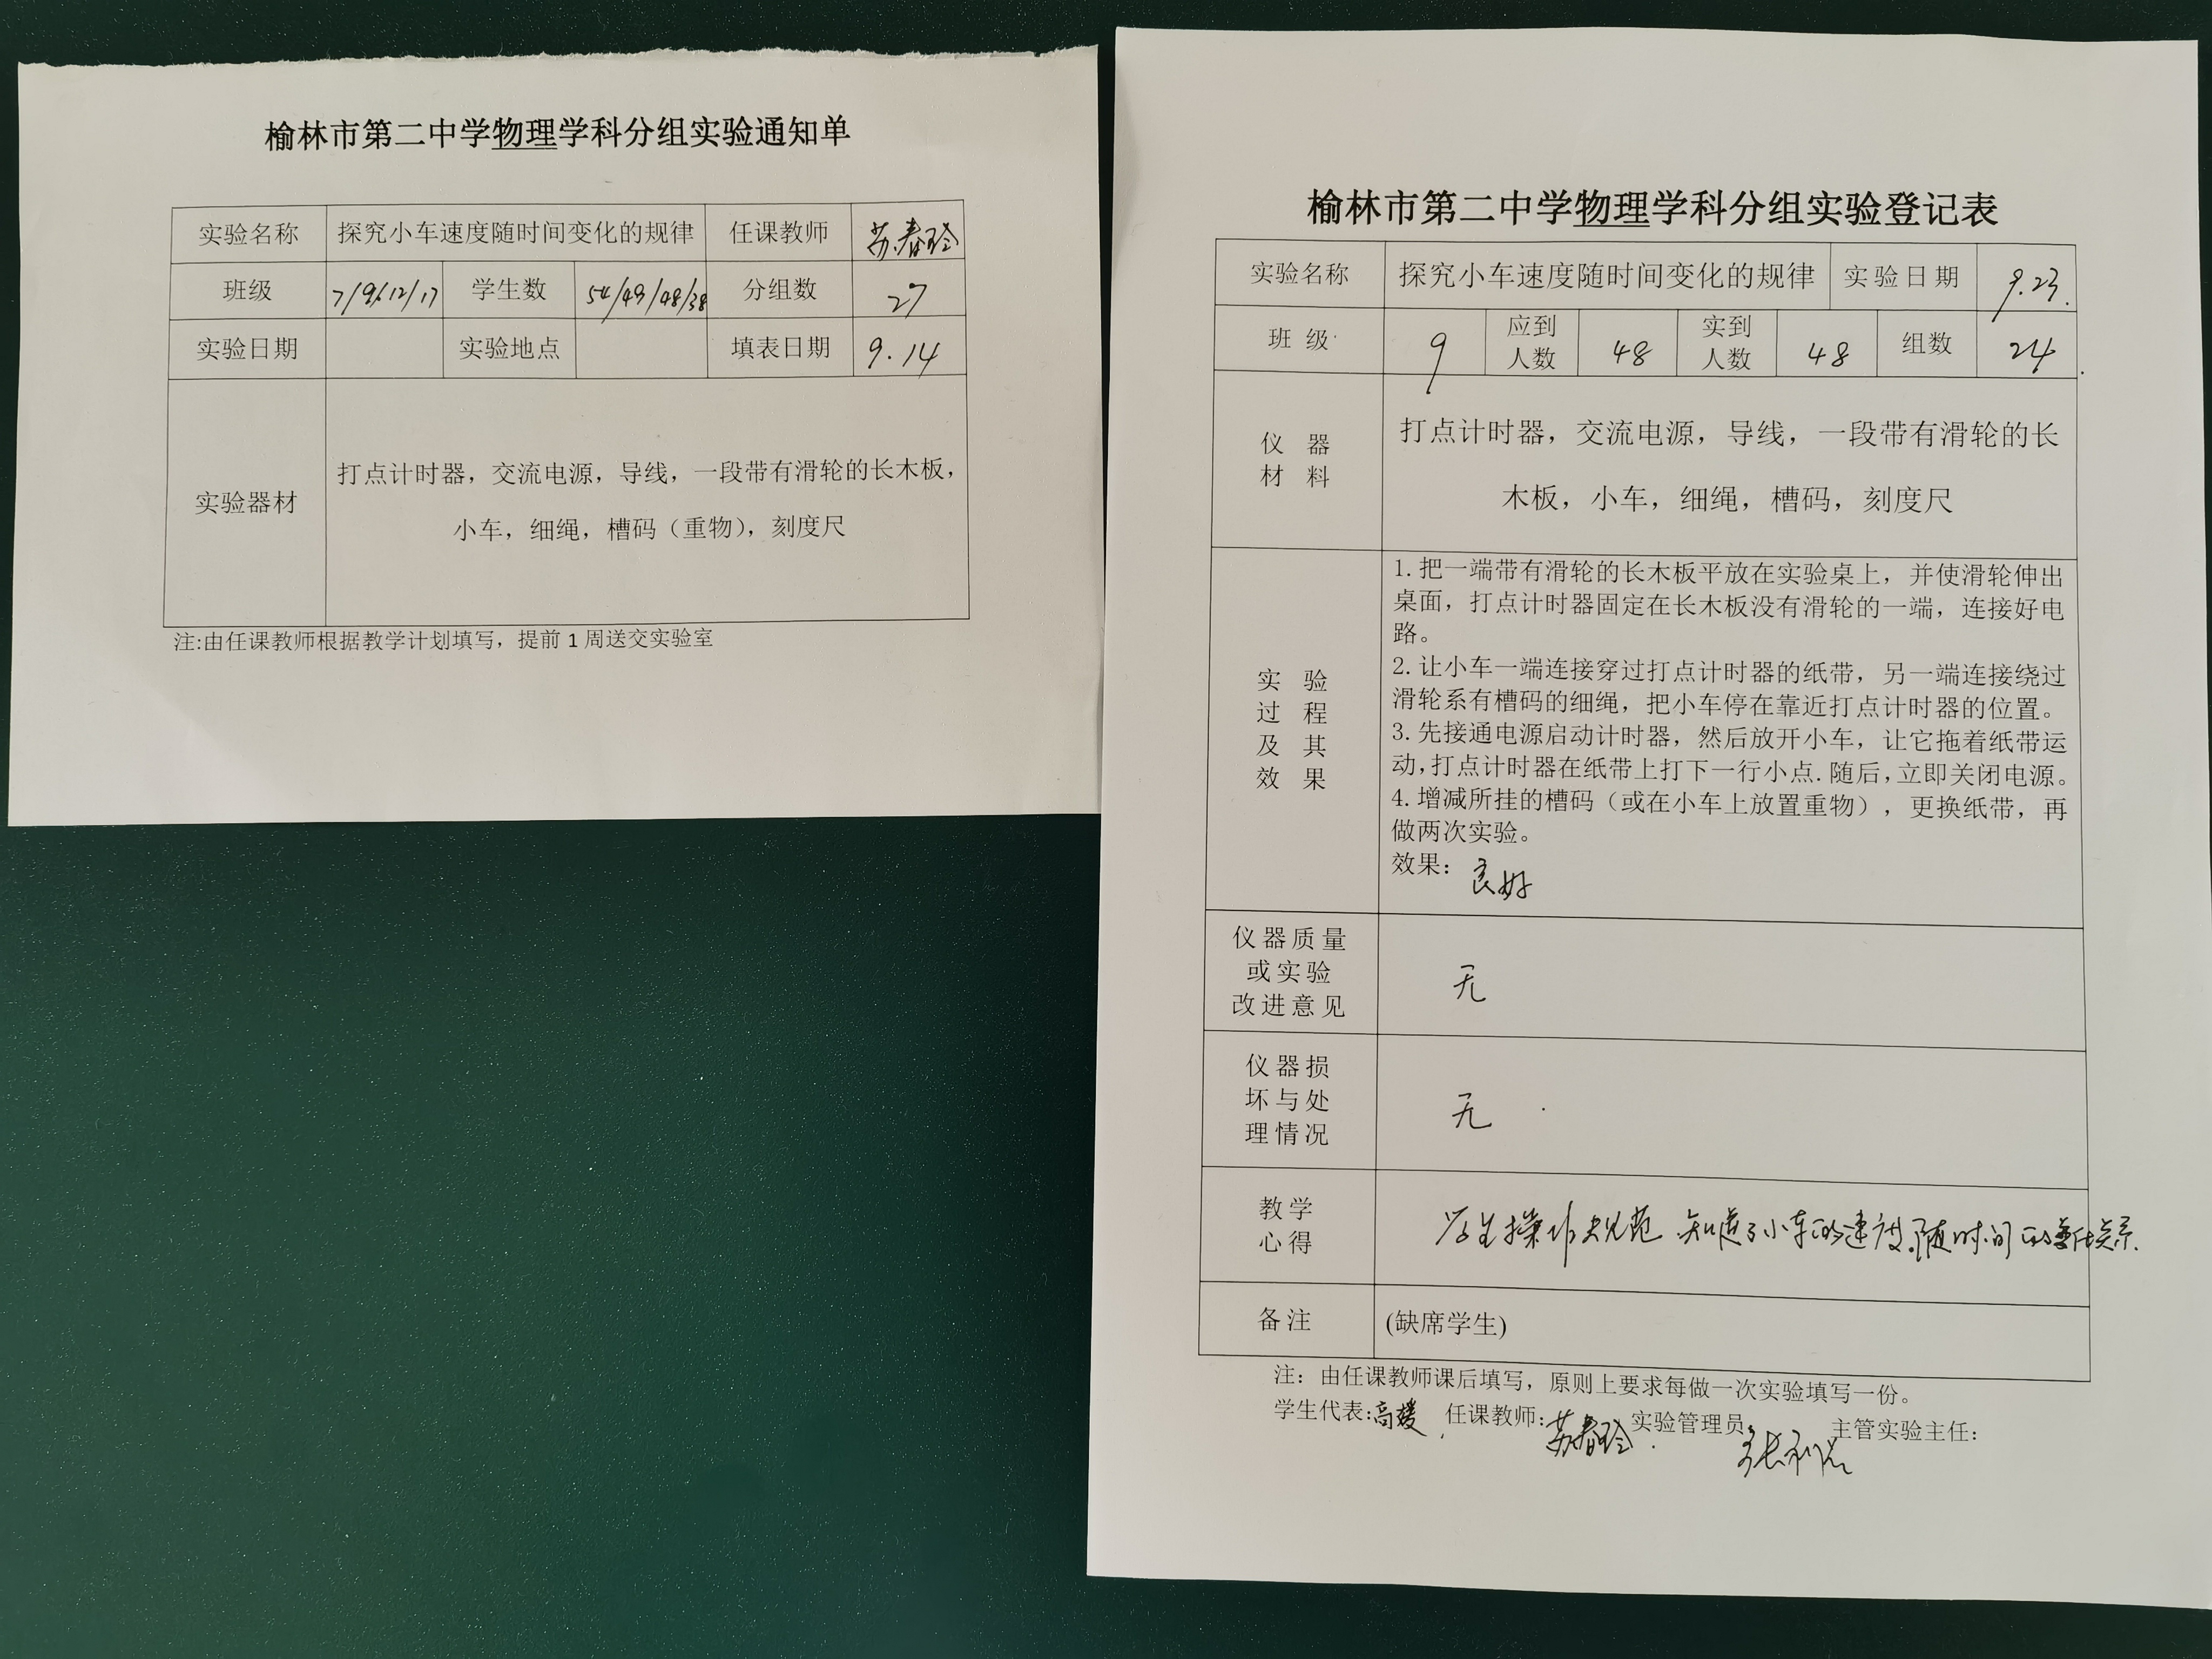 榆林市第二中学物理学科分组实验通知单
实验名称 探究小车速度随时间变化的规律 任课教师 苏春玲
班级 7/9/12/17 学生数 54/49/48/38 分组数 27
实验日期 实验地点 填表日期 9.14
实验器材
打点计时器，交流电源，导线，一段带有滑轮的长木板，
小车，细绳，槽码（重物），刻度尺
注:由任课教师根据教学计划填写，提前1周送交实验室
榆林市第二中学物理学科分组实验登记表
实验名称 探究小车速度随时间变化的规律 实验日期 9.23.
班 级 9 应到人数 48 实到人数 48 组数 24
仪 器
材 料
打点计时器，交流电源，导线，一段带有滑轮的长
木板，小车，细绳，槽码，刻度尺
实 验
过 程
及 其
效 果
1.把一端带有滑轮的长木板平放在实验桌上，并使滑轮伸出
桌面，打点计时器固定在长木板没有滑轮的一端，连接好电
路。
2.让小车一端连接穿过打点计时器的纸带，另一端连接绕过
滑轮系有槽码的细绳，把小车停在靠近打点计时器的位置。
3.先接通电源启动计时器，然后放开小车，让它拖着纸带运
动,打点计时器在纸带上打下一行小点.随后,立即关闭电源。
4.增减所挂的槽码（或在小车上放置重物），更换纸带，再
做两次实验。
效果：良好
仪器质量
或实验
改进意见
无
仪器损
坏与处
理情况
无
教学
心得
学生操作规范 知道了小车的速度随时间的变化关系.
备注 (缺席学生)
注：由任课教师课后填写，原则上要求每做一次实验填写一份。
学生代表:高媛 任课教师:苏春玲 实验管理员 主管实验主任：